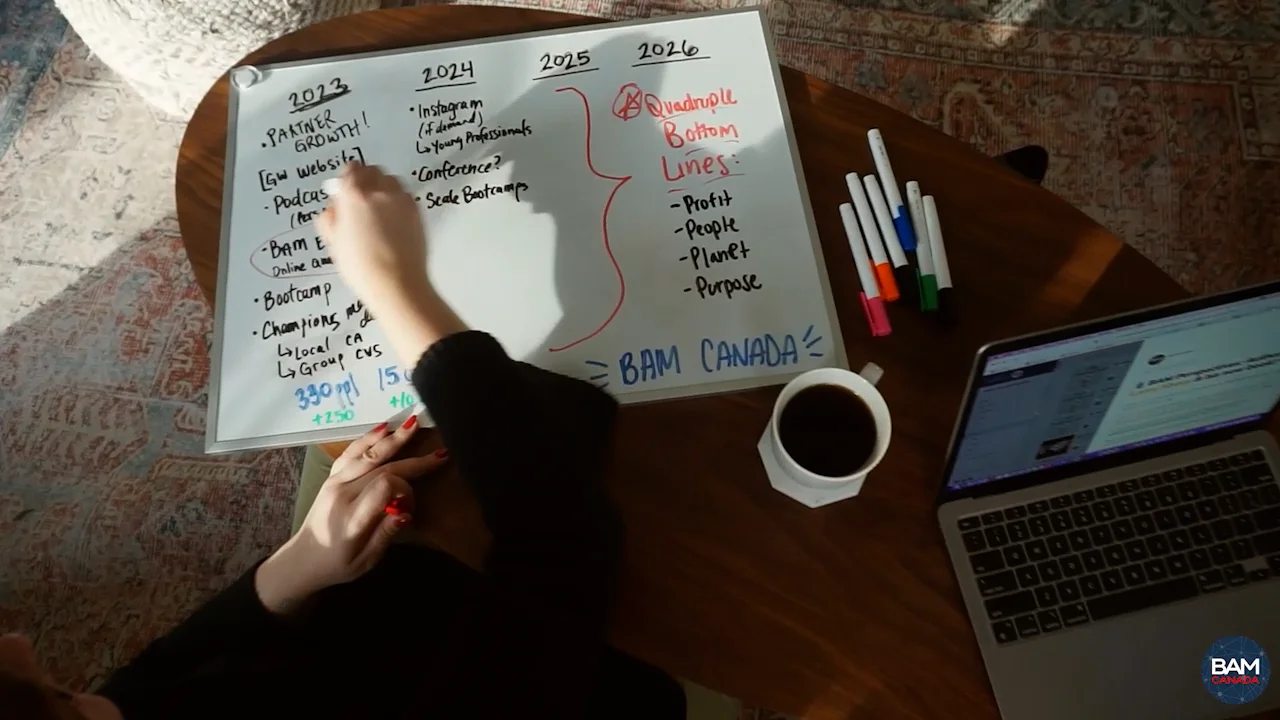 2023
• PARTNER
GROWTH!
[GW Website]
• Podcas
• BAM E
Online
• Bootcamp
• Champions
↳ Local CA
↳ Group CVS
330 ppl
+250
2024
• Instagram
(if demand)
↳ Young Professionals
• Conference?
• Scale Bootcamps
2025
2026
Quadruple
Bottom
Lines:
- Profit
- People
- Planet
- Purpose
BAM CANADA
BAM
CANADA